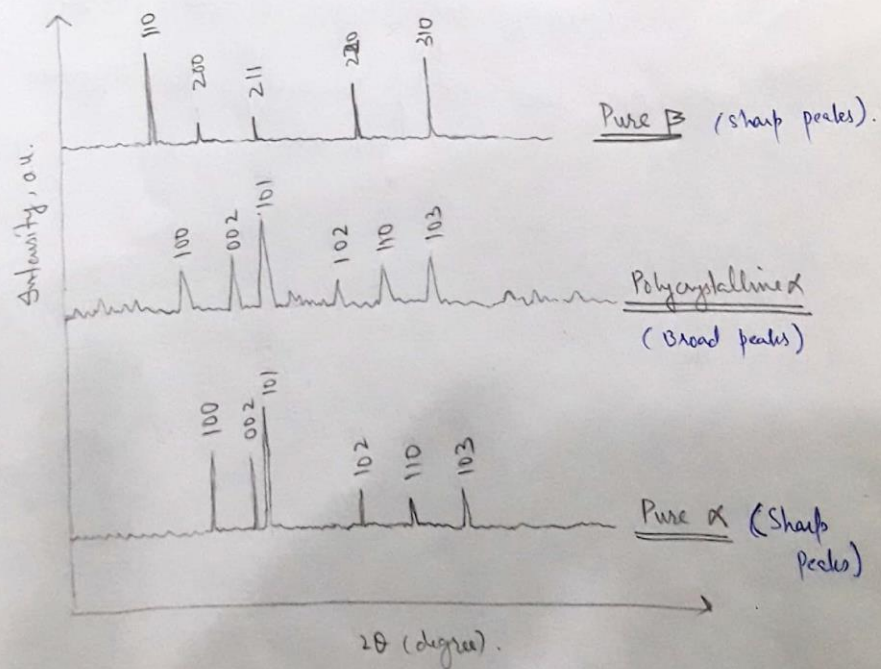 110
200
211
220
310
Pure β (sharp peaks).
Intensity, a.u.
100
002
101
102
110
103
Polycrystalline α
(Broad peaks)
100
002
101
102
110
103
Pure α (Sharp
peaks)
2θ (degree).